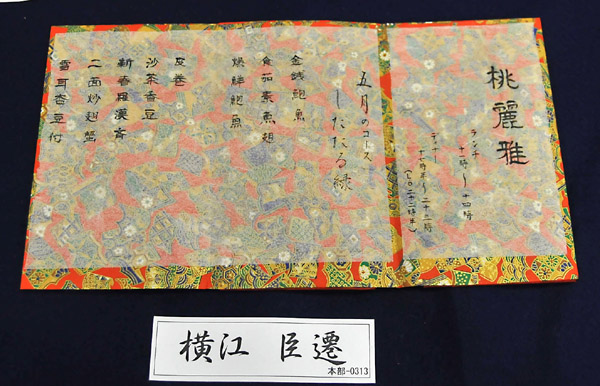 桃麗雅
ランチ
十一時〜十四時
ディナー
十七時半〜二十三時
(L.O二十二時半)
五月のコース
したたる緑
金銭鮑魚
食茄素魚翅
燥鮮鮑魚
皮巻
沙茶香豆
新香羅漢斉
二面炒翅蟹
雪耳杏豆付
横江 臣遷
本部-0313